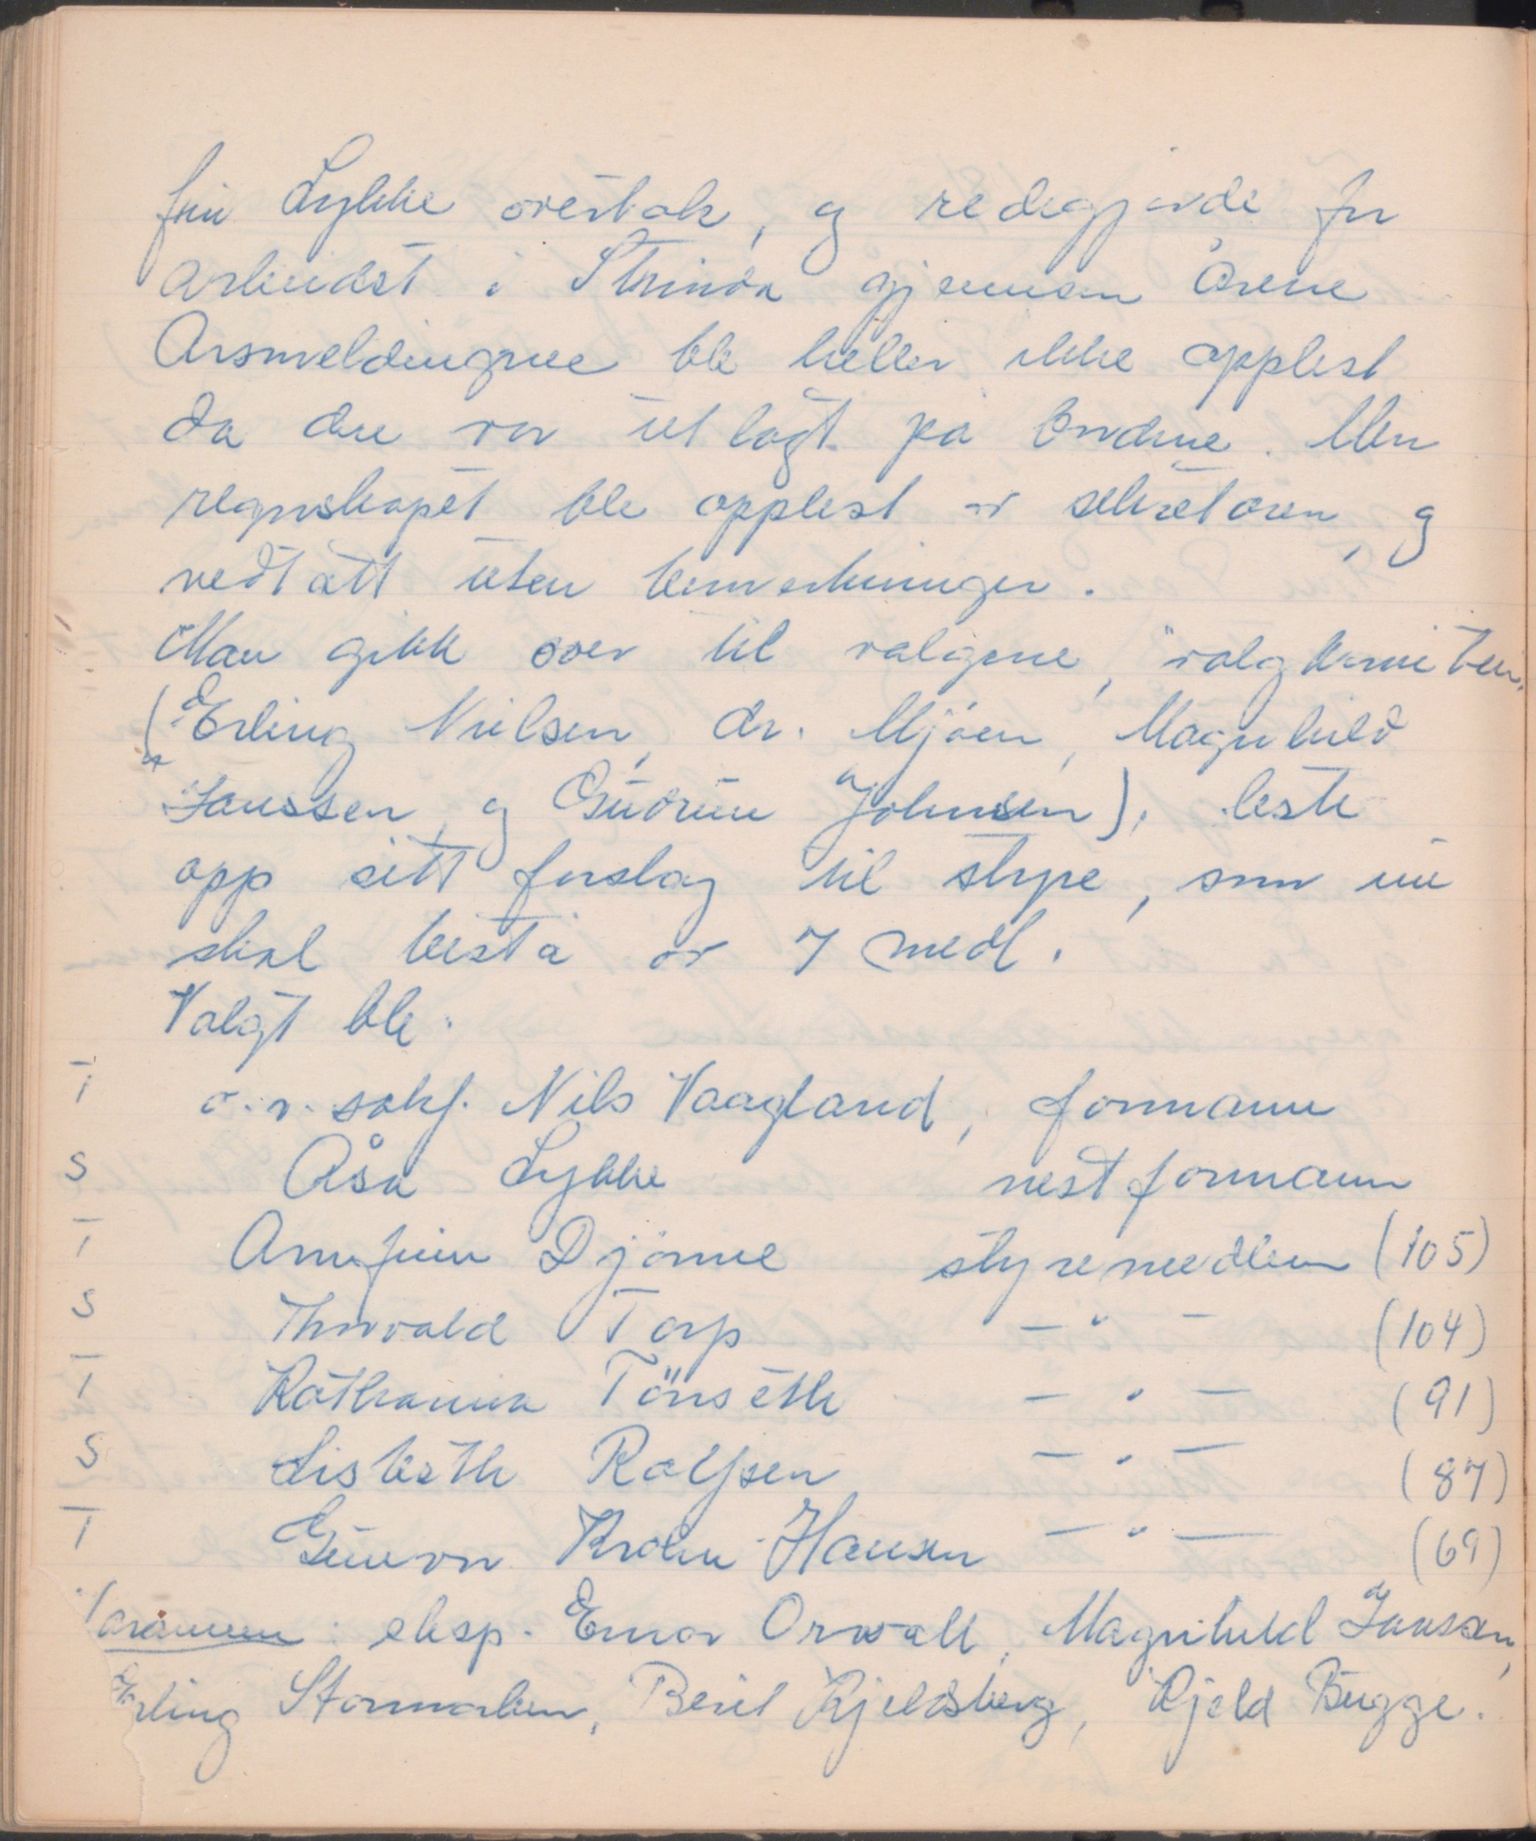 fru Lykke overtok, og redegjorde for
arbeidet i Strinda gjennem årene
Årsmeldingene ble heller ikke opplest
da den var utlagt på bordene. Men
regnskapet ble opplest av sekretæren, og
vedtatt uten bemerkninger.
Man gikk over til valgene, valgkomiteen,
(Erling Nielsen, dr. Mjøen, Magnhild
Janssen og Gudrun Johnsen), leste
opp sitt forslag til styre, som nu
skal bestå av 7 medl.
Valgt ble:
T o.r.sakf. Nils Vaagland, formann
S Åsa Lykke nestformann
T Arnfinn Djönne styremedlem (105)
S Thorvald Torp — " — (104)
T Kathanina Tönseth — " — (91)
S Lisbeth Rolfsen — " — (87)
T Gunvor Krohn-Hansen — " — (69)
Varamenn: eksp. Einar Orwall, Magnhild Jansen,
Erling Stormoken, Beril Kjeldsberg, Kjeld Bugge.